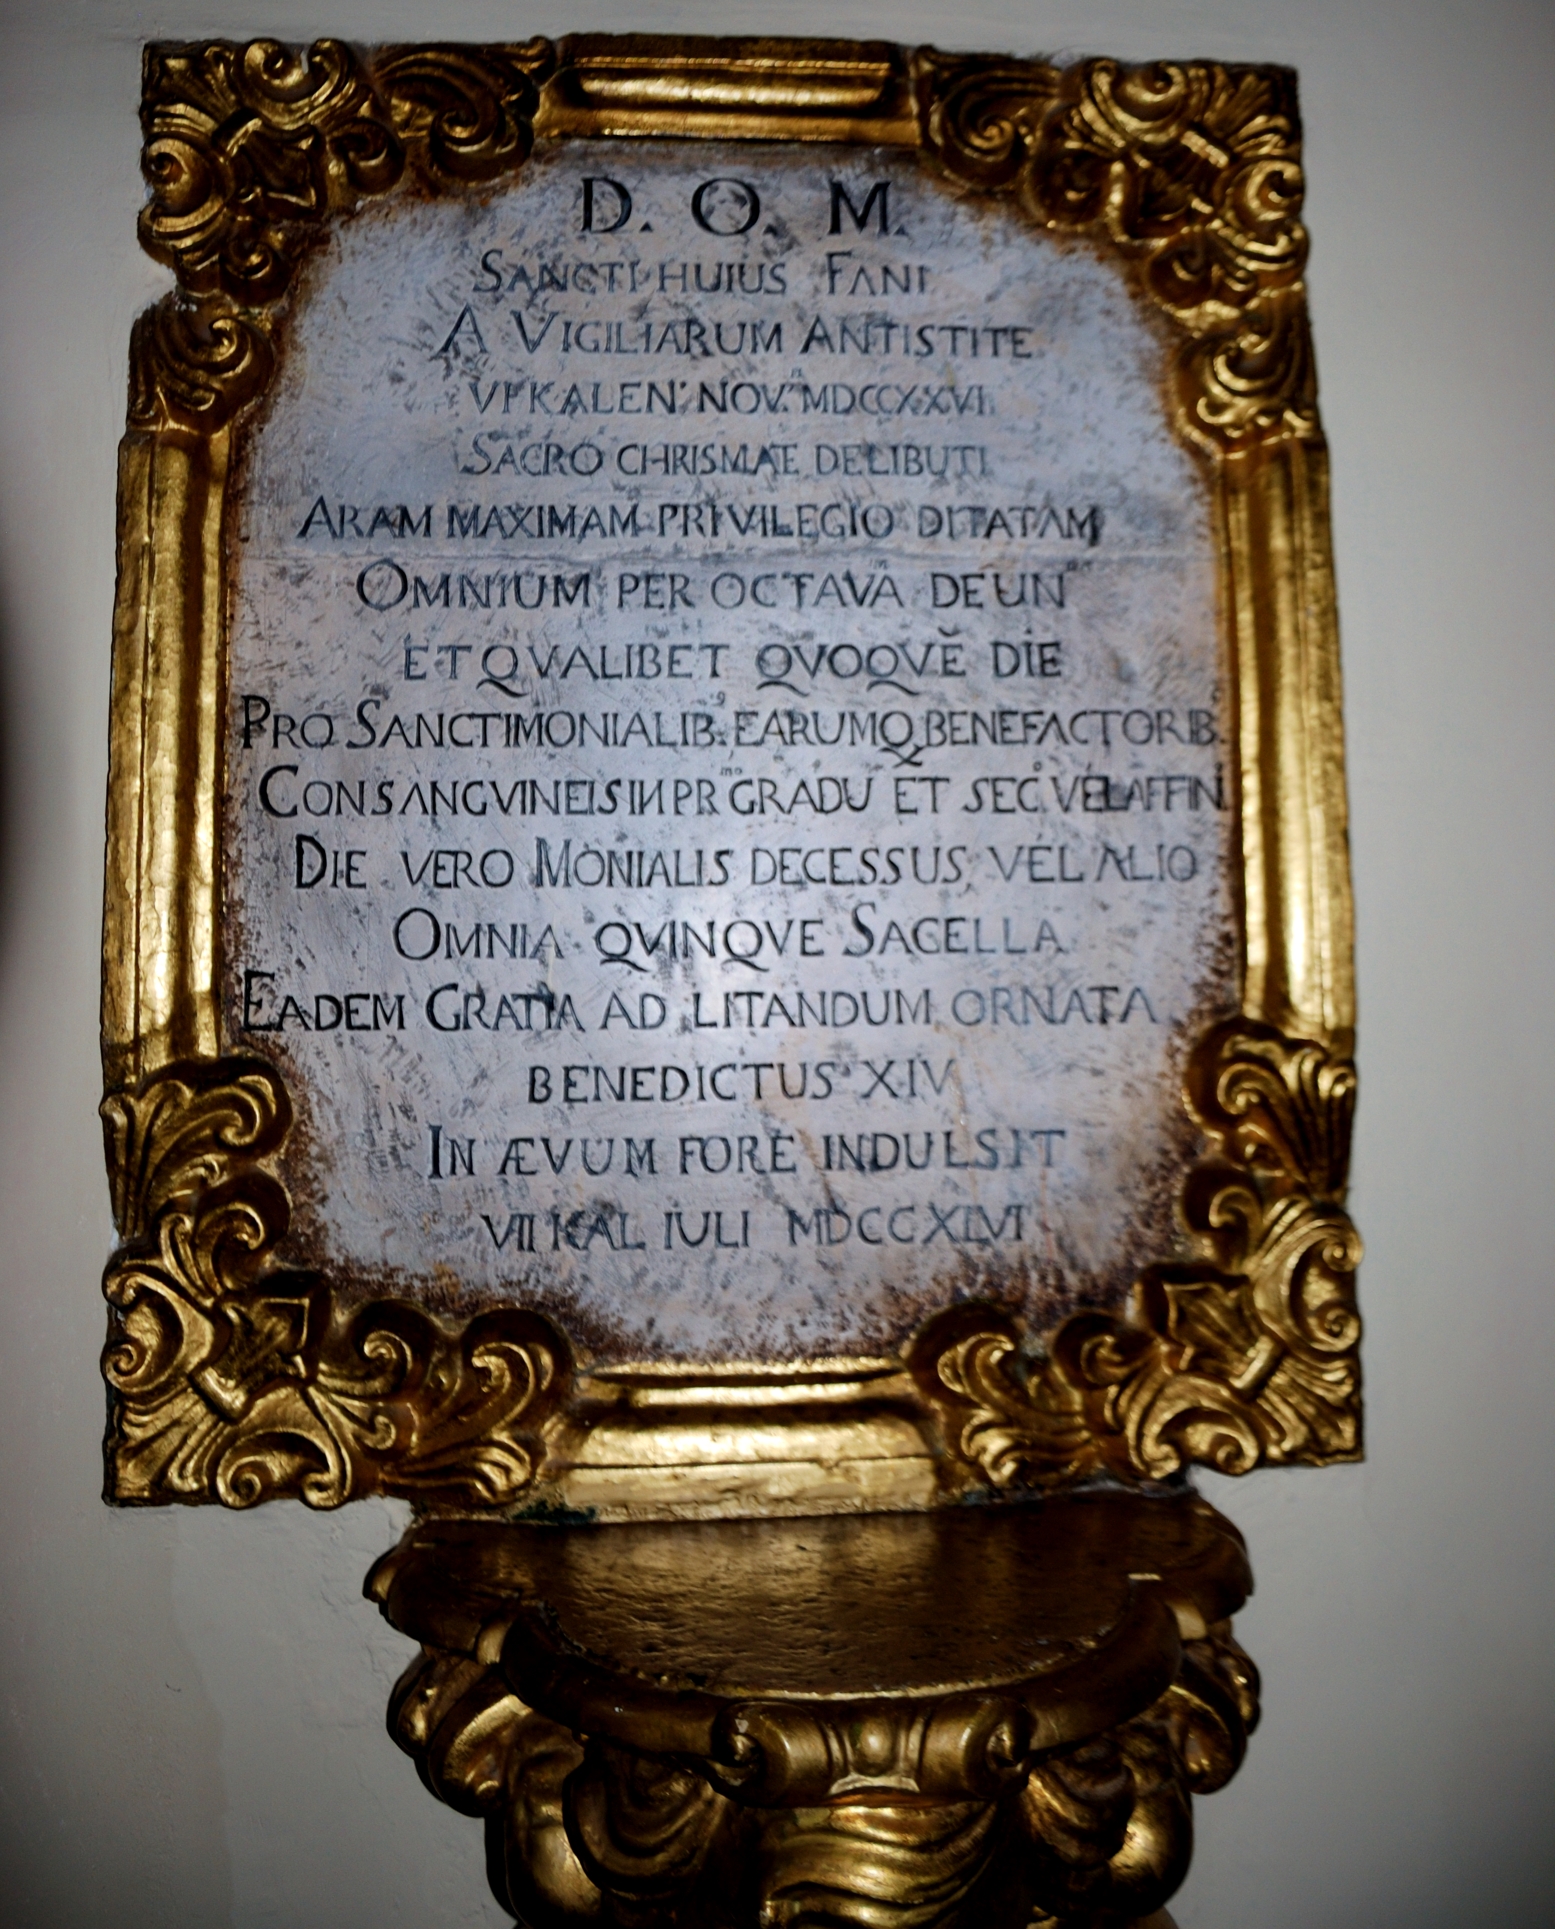 D. O. M.
SANCTI HUIUS FANI
A VIGILIARUM ANTISTITE
VI KALEN: NOV. MDCCXXVI
SACRO CHRISMATE DELIBUTI
ARAM MAXIMAM PRIVILEGIO DITATAM
OMNIUM PER OCTAVA DEUN
ET QVALIBET QVOQVĔ DIE
PRO SANCTIMONIALIB. EARUMQ BENEFACTORIB.
CONSANGVINEIS IN PR.mo GRADU ET SEC.o VEL AFFIN
DIE VERO MONIALIS DECESSUS VEL ALIO
OMNIA QVINQVE SACELLA
EADEM GRATIA AD LITANDUM ORNATA
BENEDICTUS XIV
IN ÆVUM FORE INDULSIT
VII KAL IULI MDCCXLVI